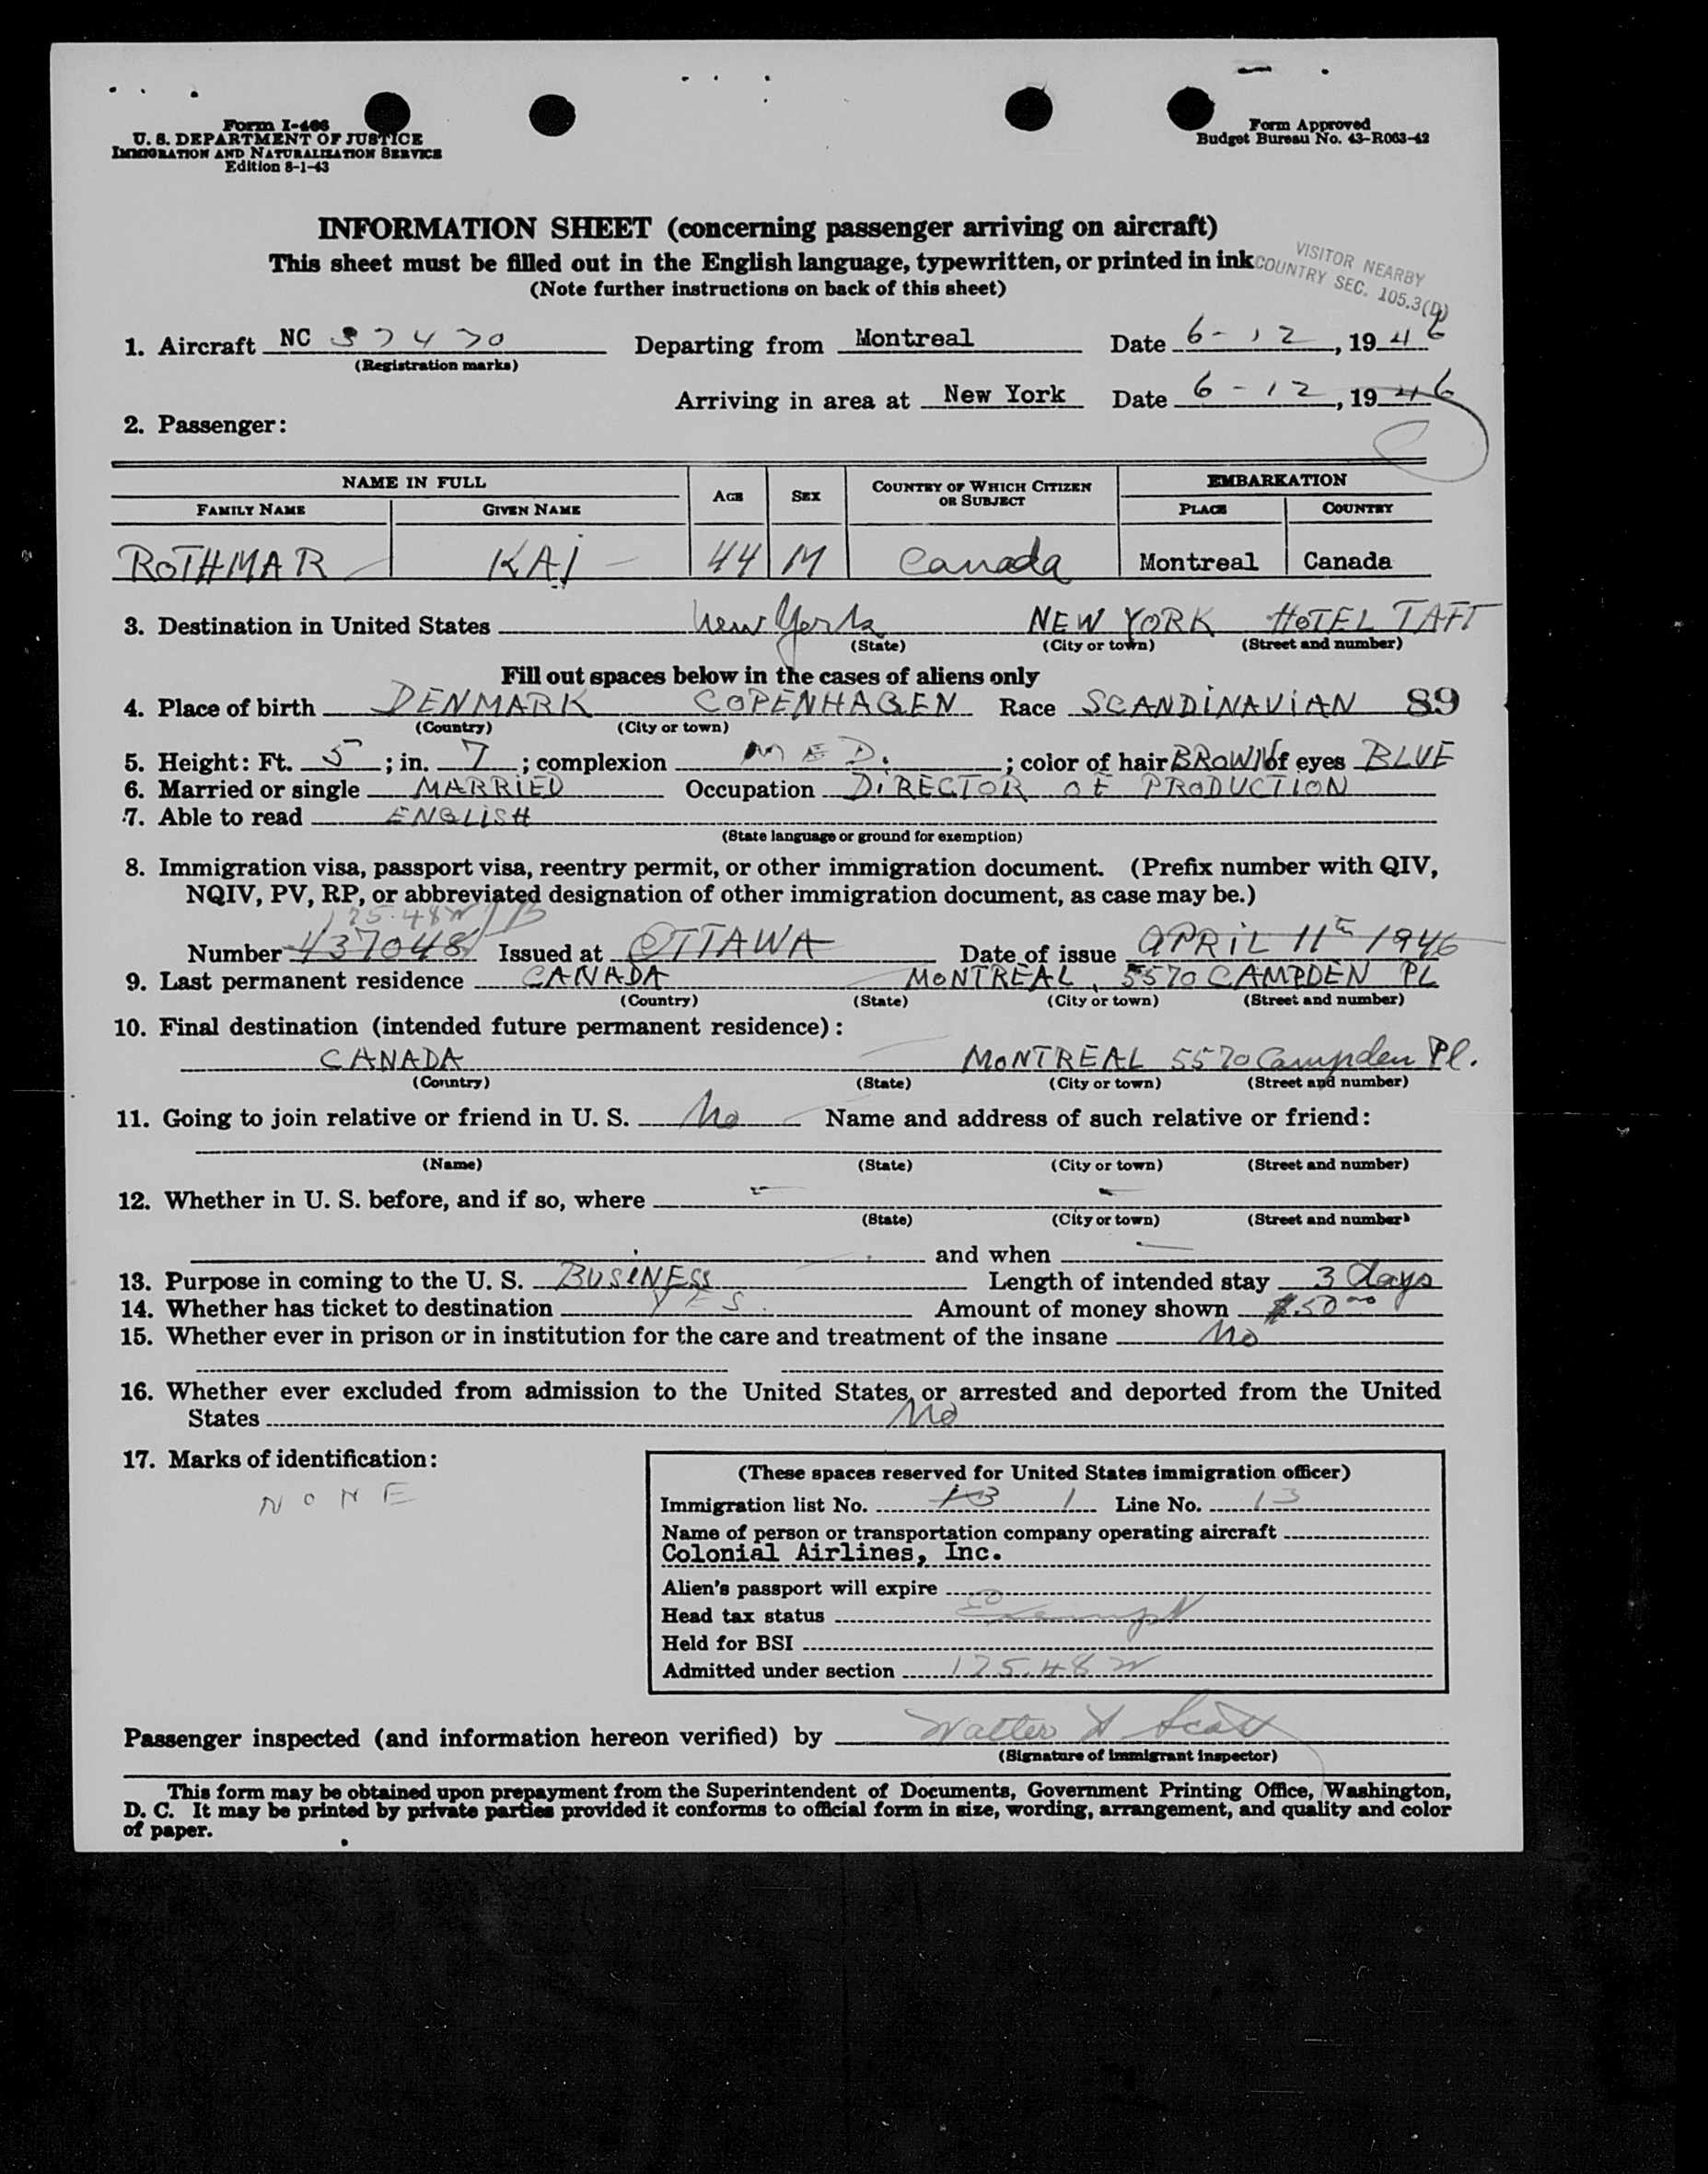 Form I-466
U. S. DEPARTMENT OF JUSTICE
IMMIGRATION AND NATURALIZATION SERVICE
Edition 8-1-43
Form Approved
Budget Bureau No. 43-R063-42
INFORMATION SHEET (concerning passenger arriving on aircraft)
This sheet must be filled out in the English language, typewritten, or printed in ink
(Note further instructions on back of this sheet)
VISITOR NEARBY
COUNTRY SEC. 105.3(D)
1. Aircraft NC 37470 Departing from Montreal Date 6-12, 1946
(Registration marks)
Arriving in area at New York Date 6-12, 1946
2. Passenger:
NAME IN FULL AGE SEX COUNTRY OF WHICH CITIZEN OR SUBJECT EMBARKATION
FAMILY NAME GIVEN NAME PLACE COUNTRY
ROTHMAR KAJ 44 M Canada Montreal Canada
3. Destination in United States New York NEW YORK HOTEL TAFT
(State) (City or town) (Street and number)
Fill out spaces below in the cases of aliens only
4. Place of birth DENMARK COPENHAGEN Race SCANDINAVIAN 89
(Country) (City or town)
5. Height: Ft. 5; in. 7; complexion MED.; color of hair BROWN of eyes BLUE
6. Married or single MARRIED Occupation DIRECTOR OF PRODUCTION
7. Able to read ENGLISH
(State language or ground for exemption)
8. Immigration visa, passport visa, reentry permit, or other immigration document. (Prefix number with QIV,
NQIV, PV, RP, or abbreviated designation of other immigration document, as case may be.)
175.48
Number 437048 Issued at OTTAWA Date of issue APRIL 11th 1946
9. Last permanent residence CANADA MONTREAL, 5570 CAMPDEN PL
(Country) (State) (City or town) (Street and number)
10. Final destination (intended future permanent residence):
CANADA MONTREAL 5570 Campden Pl.
(Country) (State) (City or town) (Street and number)
11. Going to join relative or friend in U. S. No Name and address of such relative or friend:
(Name) (State) (City or town) (Street and number)
12. Whether in U. S. before, and if so, where
(State) (City or town) (Street and number)
and when
13. Purpose in coming to the U. S. BUSINESS Length of intended stay 3 days
14. Whether has ticket to destination YES. Amount of money shown $50.00
15. Whether ever in prison or in institution for the care and treatment of the insane No
16. Whether ever excluded from admission to the United States, or arrested and deported from the United
States No
17. Marks of identification:
NONE
(These spaces reserved for United States immigration officer)
Immigration list No. 13 1 Line No. 13
Name of person or transportation company operating aircraft
Colonial Airlines, Inc.
Alien's passport will expire
Head tax status Exempt
Held for BSI
Admitted under section 175.48
Passenger inspected (and information hereon verified) by Walter Scott
(Signature of immigrant inspector)
This form may be obtained upon prepayment from the Superintendent of Documents, Government Printing Office, Washington,
D. C. It may be printed by private parties provided it conforms to official form in size, wording, arrangement, and quality and color
of paper.